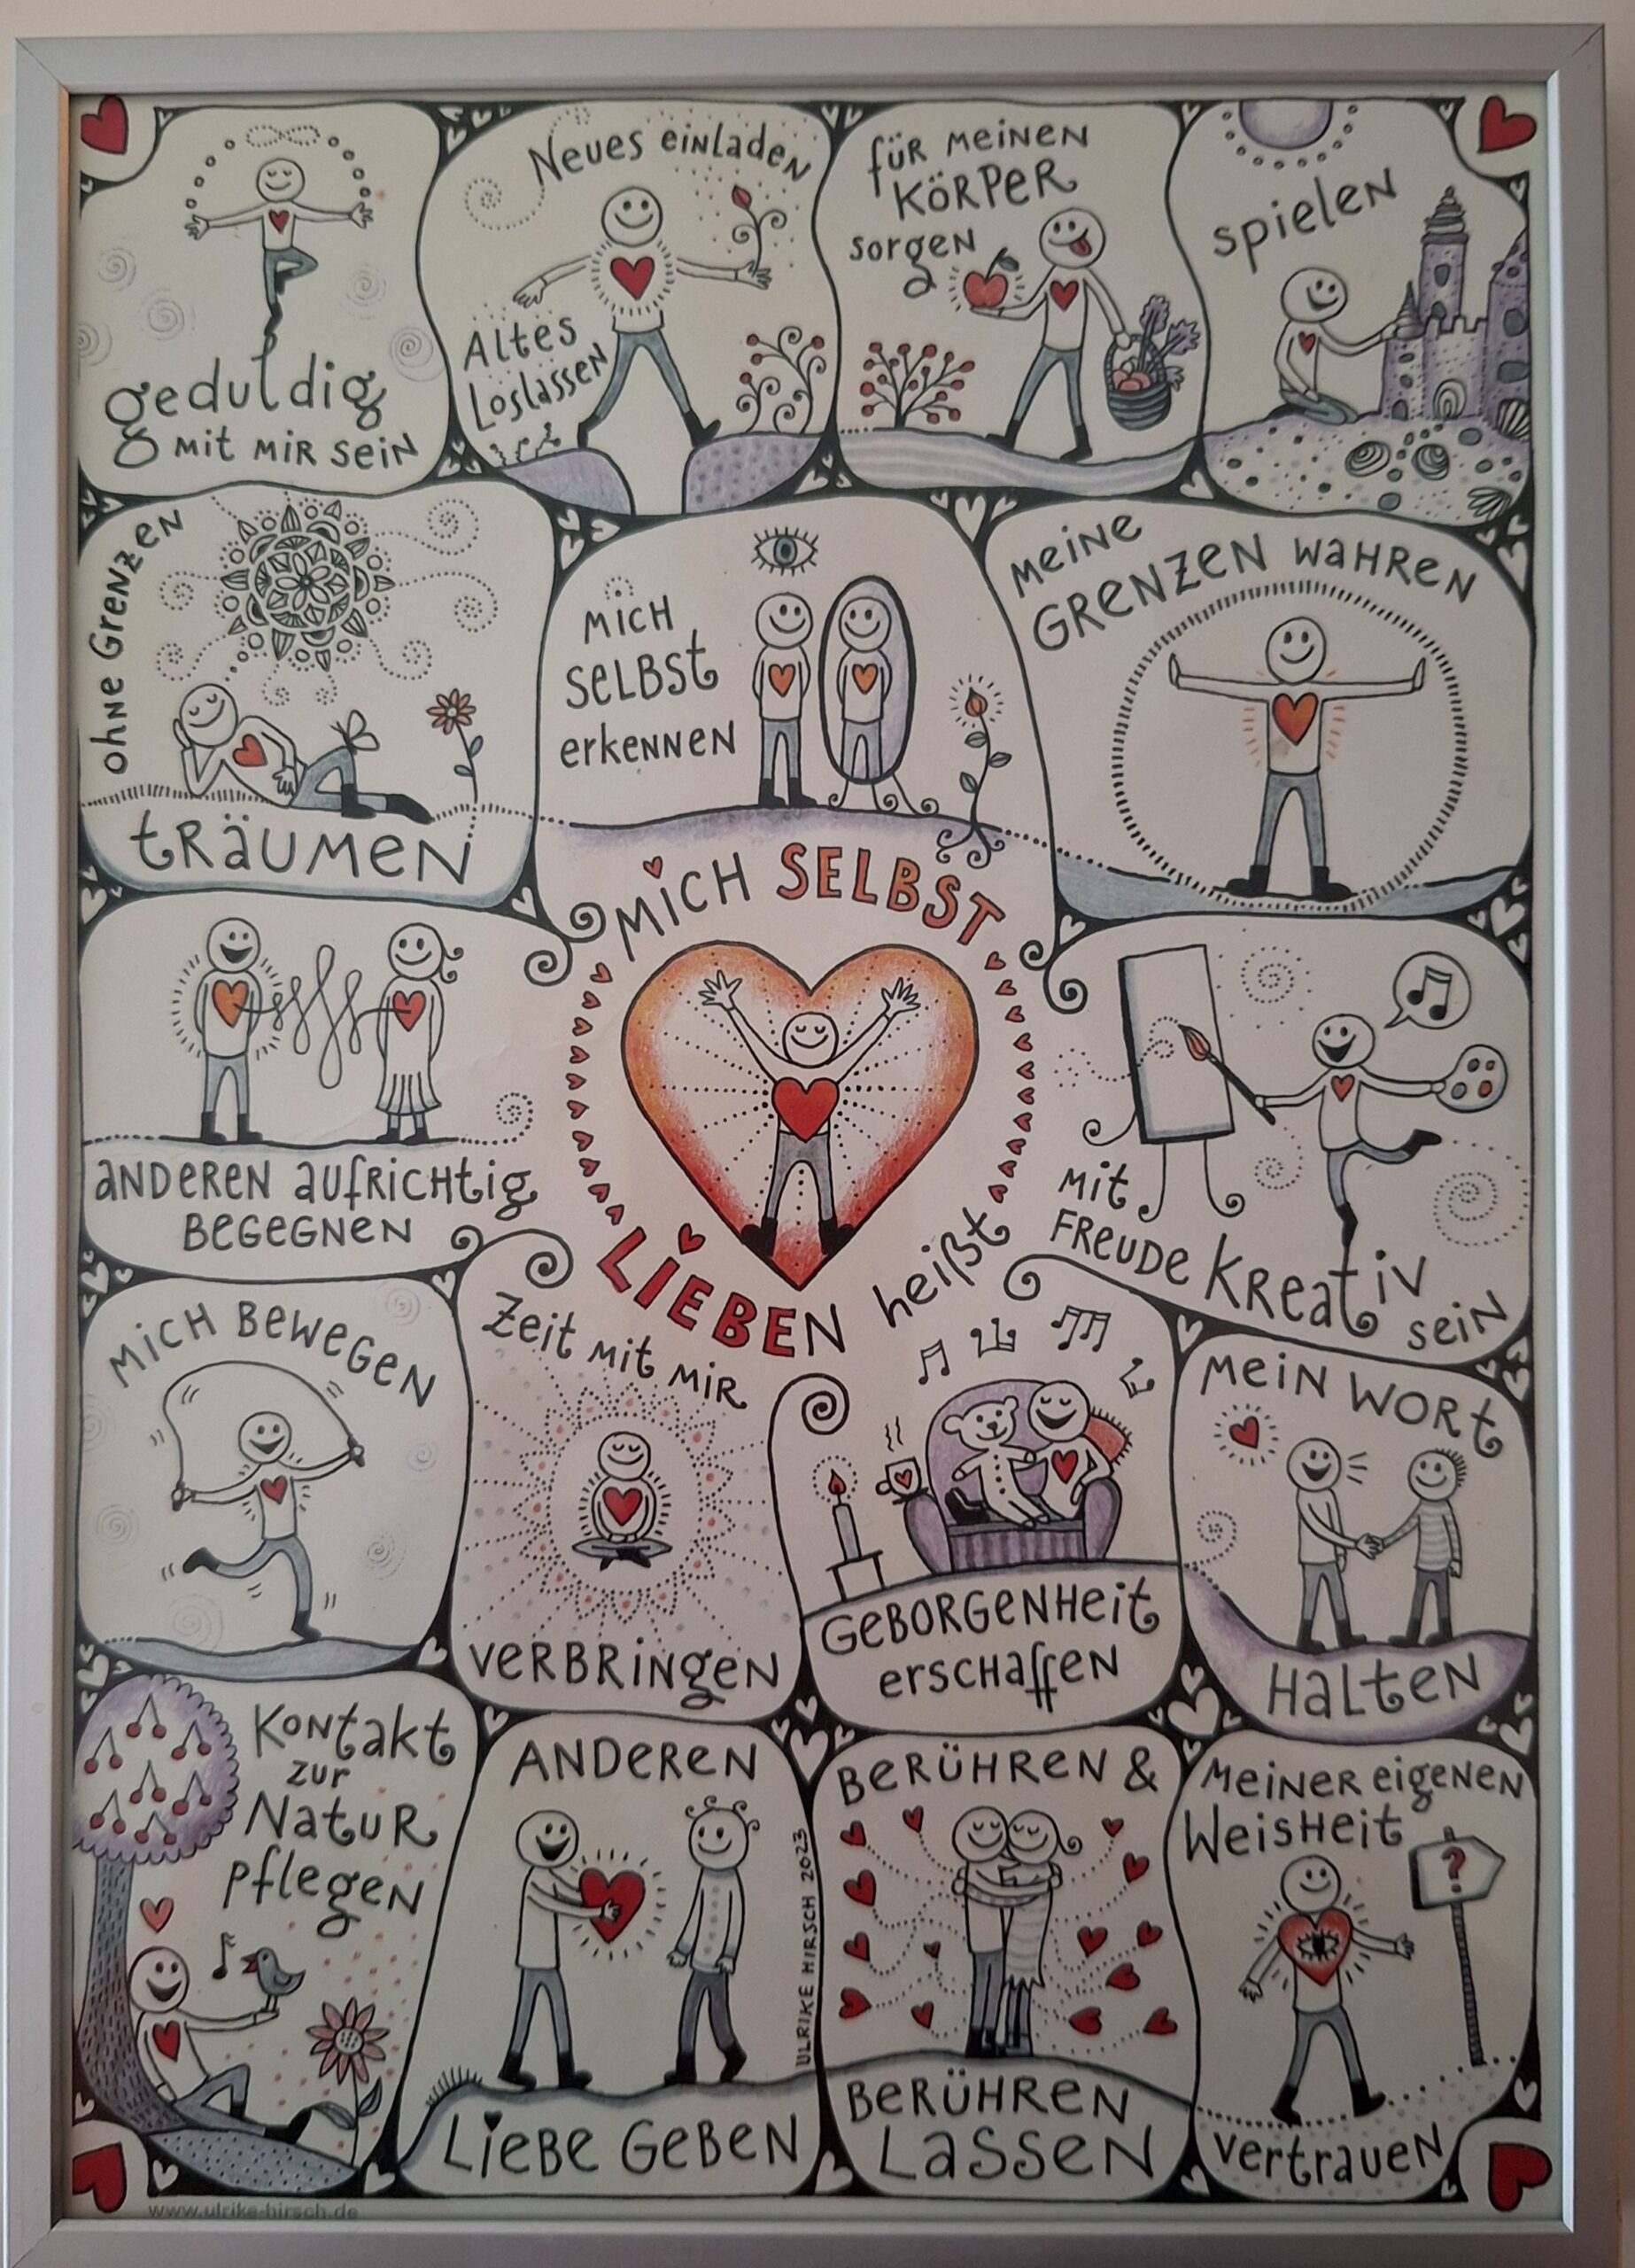 geduldig
mit mir sein
Neues einladen
Altes
Loslassen
für meinen
Körper
sorgen
spielen
ohne Grenzen
träumen
mich
selbst
erkennen
meine
Grenzen wahren
mich SELBST
LIEBEN heißt
anderen aufrichtig
begegnen
mit
Freude kreativ
sein
mich bewegen
Zeit mit mir
verbringen
Geborgenheit
erschaffen
mein Wort
halten
Kontakt
zur
Natur
pflegen
anderen
Liebe geben
ULRIKE HIRSCH 2023
berühren &
berühren
lassen
meiner eigenen
Weisheit
?
vertrauen
www.ulrike-hirsch.de